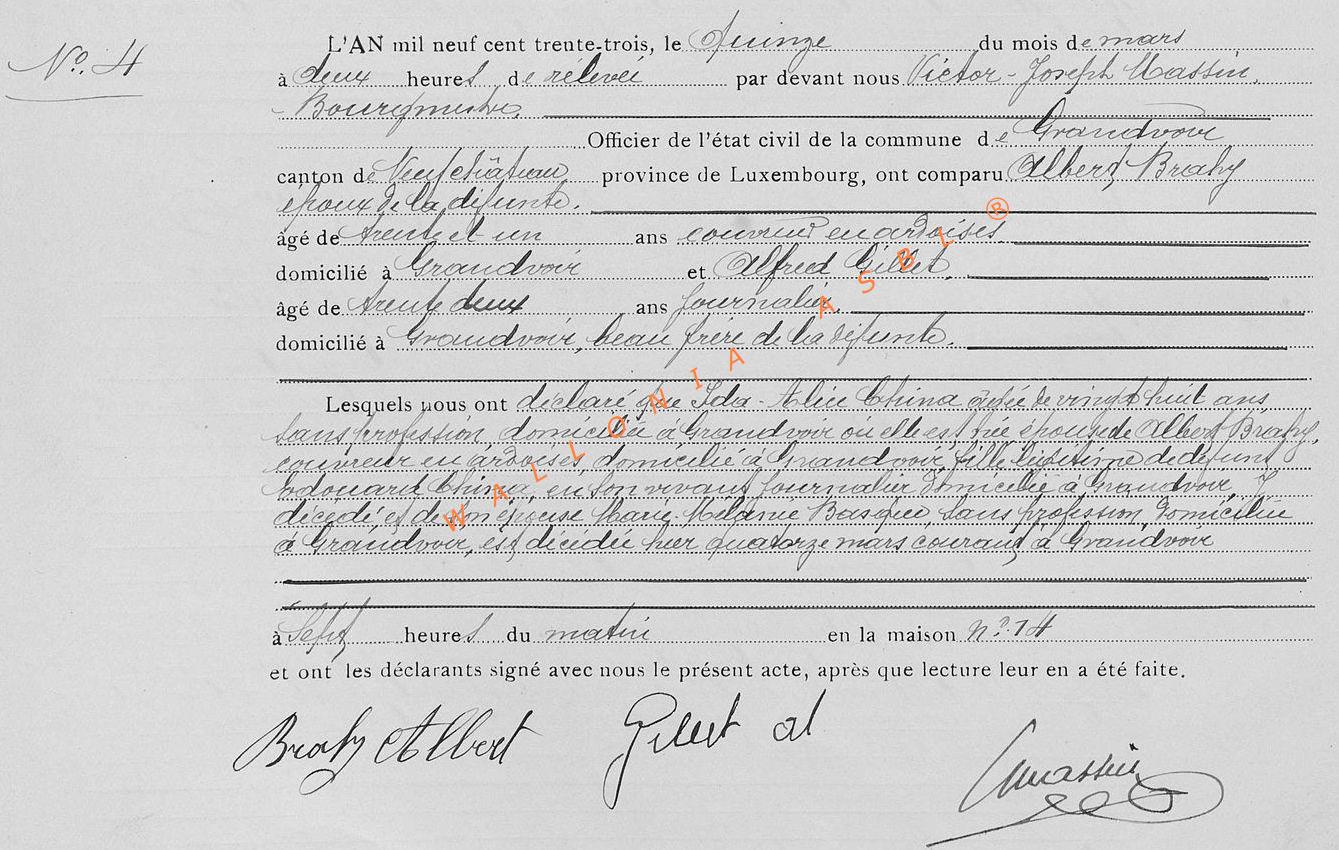 N° 4
L'AN mil neuf cent trente-trois, le quinze du mois de mars
à deux heures de relevée par devant nous Victor-Joseph Massin,
Bourgmestre,
Officier de l'état civil de la commune de Grandvoir
canton de Neufchâteau province de Luxembourg, ont comparu Albert Brahy
époux de la défunte.
âgé de trente et un ans couvreur en ardoises
domicilié à Grandvoir et Alfred Gillet,
âgé de trente deux ans journalier,
domicilié à Grandvoir, beau frère de la défunte.
Lesquels nous ont déclaré que Ida-Alice China âgée de vingt huit ans
sans profession, domiciliée à Grandvoir où elle est née épouse de Albert Brahy,
couvreur en ardoises, domicilié à Grandvoir, fille légitime de défunt
Edouard China, en son vivant journalier domicilié à Grandvoir, y
décédé, et de son épouse Marie Mélanie Basquin, sans profession, domiciliée
à Grandvoir, est décédée hier quatorze mars courant à Grandvoir
à Sept heures du matin en la maison n° 14
et ont les déclarants signé avec nous le présent acte, après que lecture leur en a été faite.
Brahy Albert Gillet al
VMassin
WALLONIA ASBL ®